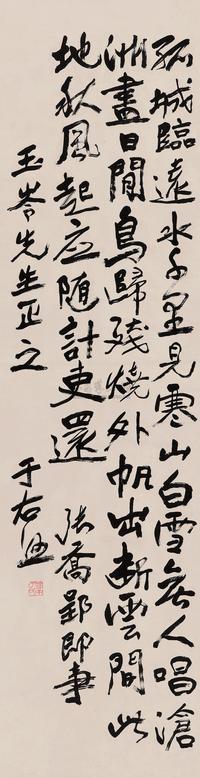 孤城臨遠水千里見寒山白雪無人唱滄
洲盡日閒鳥歸殘燒外帆出斷雲間此
地秋風起应隨計吏還
張喬郢即事
玉岑先生正之
于右任